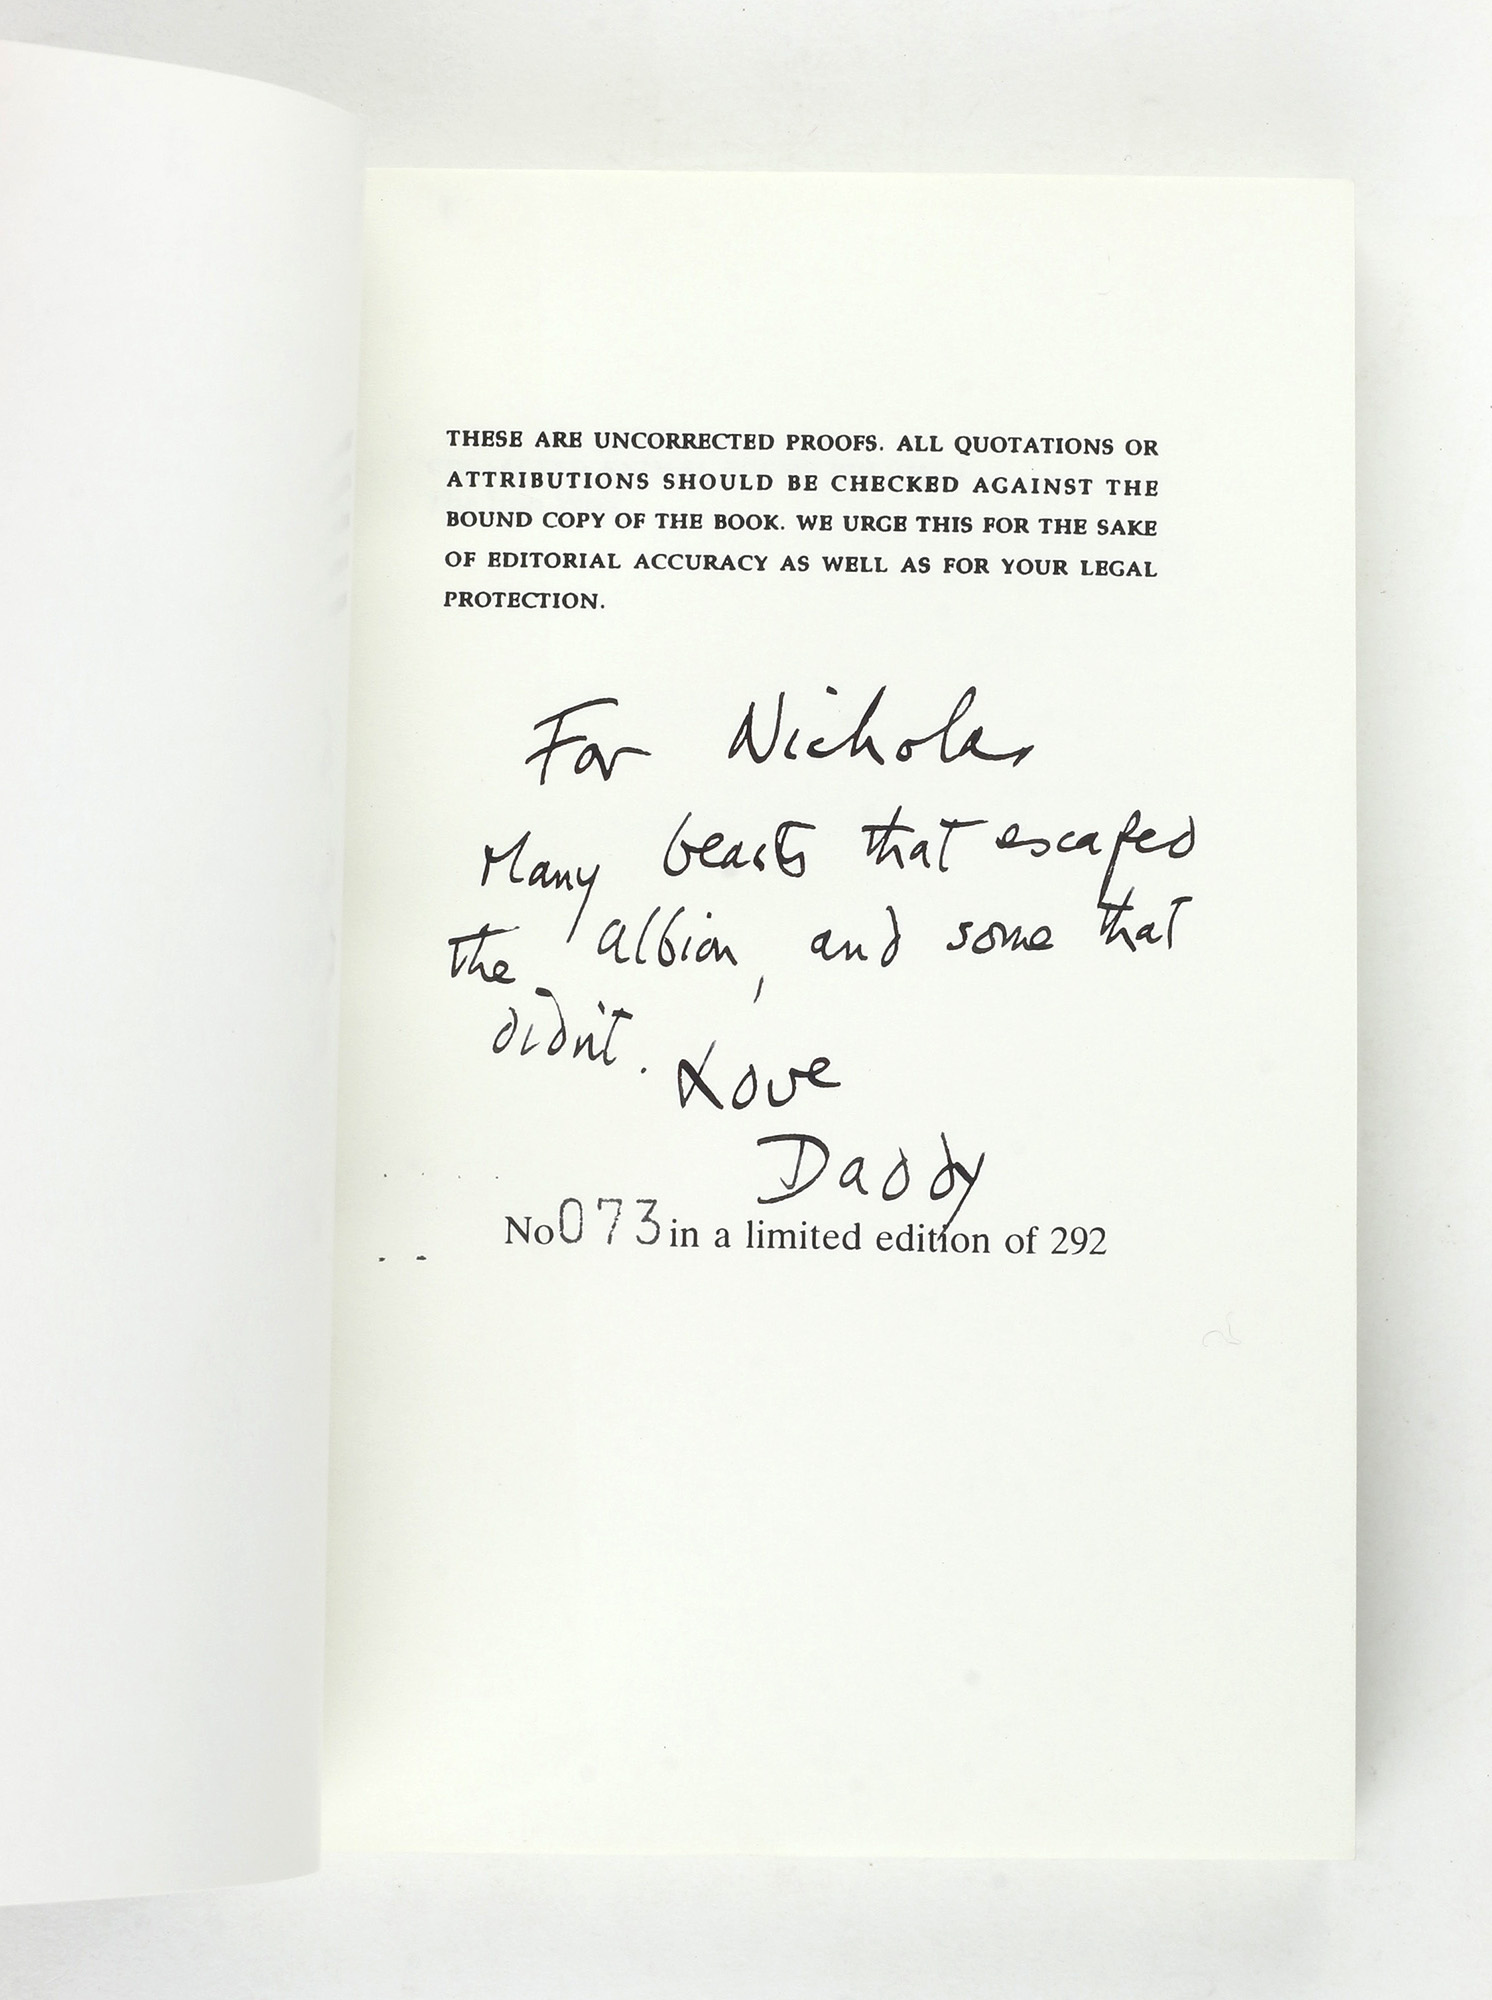 THESE ARE UNCORRECTED PROOFS. ALL QUOTATIONS OR
ATTRIBUTIONS SHOULD BE CHECKED AGAINST THE
BOUND COPY OF THE BOOK. WE URGE THIS FOR THE SAKE
OF EDITORIAL ACCURACY AS WELL AS FOR YOUR LEGAL
PROTECTION.
For Nicholas
Many beasts that escaped
the Albion, and some that
didn't. Love
Daddy
No 073 in a limited edition of 292